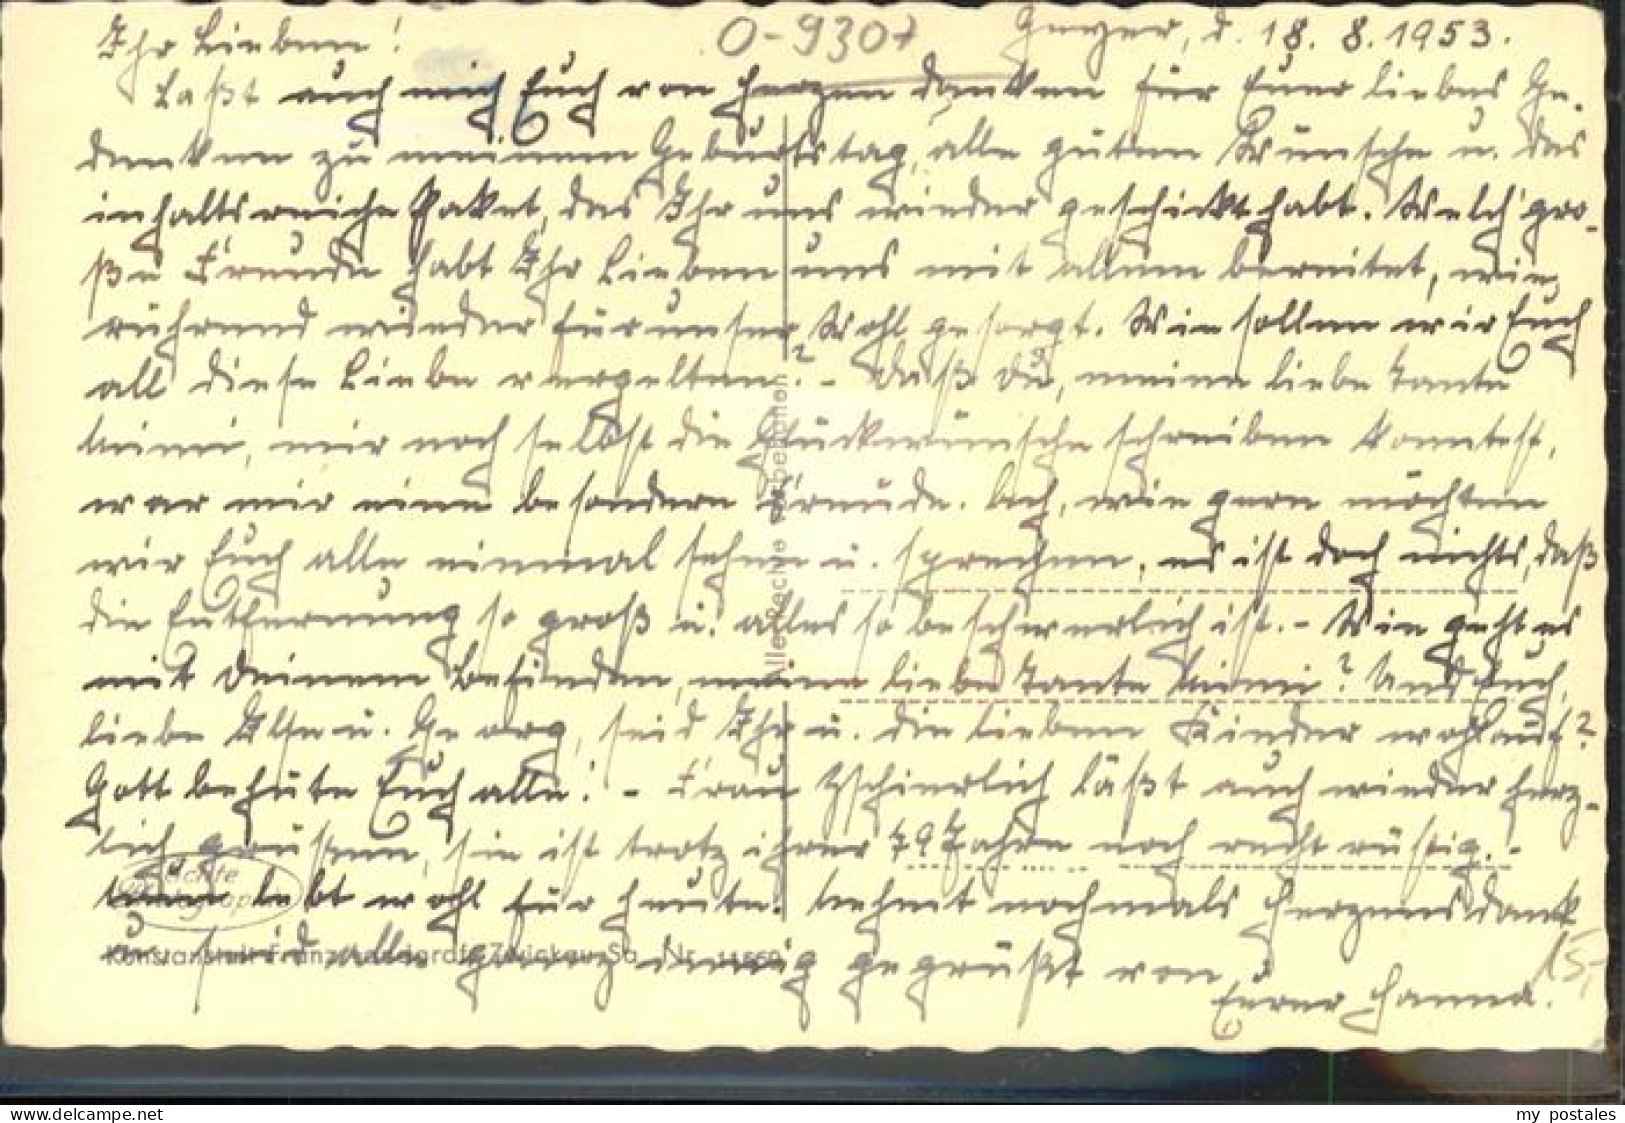 O-9307
Geyer, d. 18. 8. 1953.
Ihr Lieben!
Laßt auch mich Euch von Herzen danken für Euer liebes Ge-
denken zu meinem Geburtstag, alle guten Wünsche u. das
inhaltsreiche Paket, das Ihr uns wieder geschickt habt. Welch' gro-
ße Freude habt Ihr Lieben uns mit allem bereitet, wie
rührend wieder für unser Wohl gesorgt. Wie sollen wir Euch
all diese Liebe vergelten? - Daß Du, meine liebe Tante
Mimi, mir noch selbst die Glückwünsche schreiben konntest,
war mir eine besondere Freude. Ach, wie gern möchten
wir Euch alle einmal sehen u. sprechen, es ist doch nichts, daß
die Entfernung so groß u. alles so beschwerlich ist. - Wie geht es
mit Deinem Befinden, meine liebe Tante Mimi? Und Euch,
liebe Ilse u. Georg, seid Ihr u. die lieben Kinder wohlauf?
Gott behüte Euch alle! - Frau Zschierlich läßt auch wieder herz-
lich grüßen, sie ist trotz ihrer 79 Jahre noch recht rüstig. -
Nun lebt wohl für heute! Nehmt nochmals Herzensdank
u. seid alle ganz innig gegrüßt von
Eurer Hanna.
15,-
Alle Rechte vorbehalten
Echte
Konstanstin Franz, Zwickau, Sa. Nr.
www.delcampe.net
my_postales